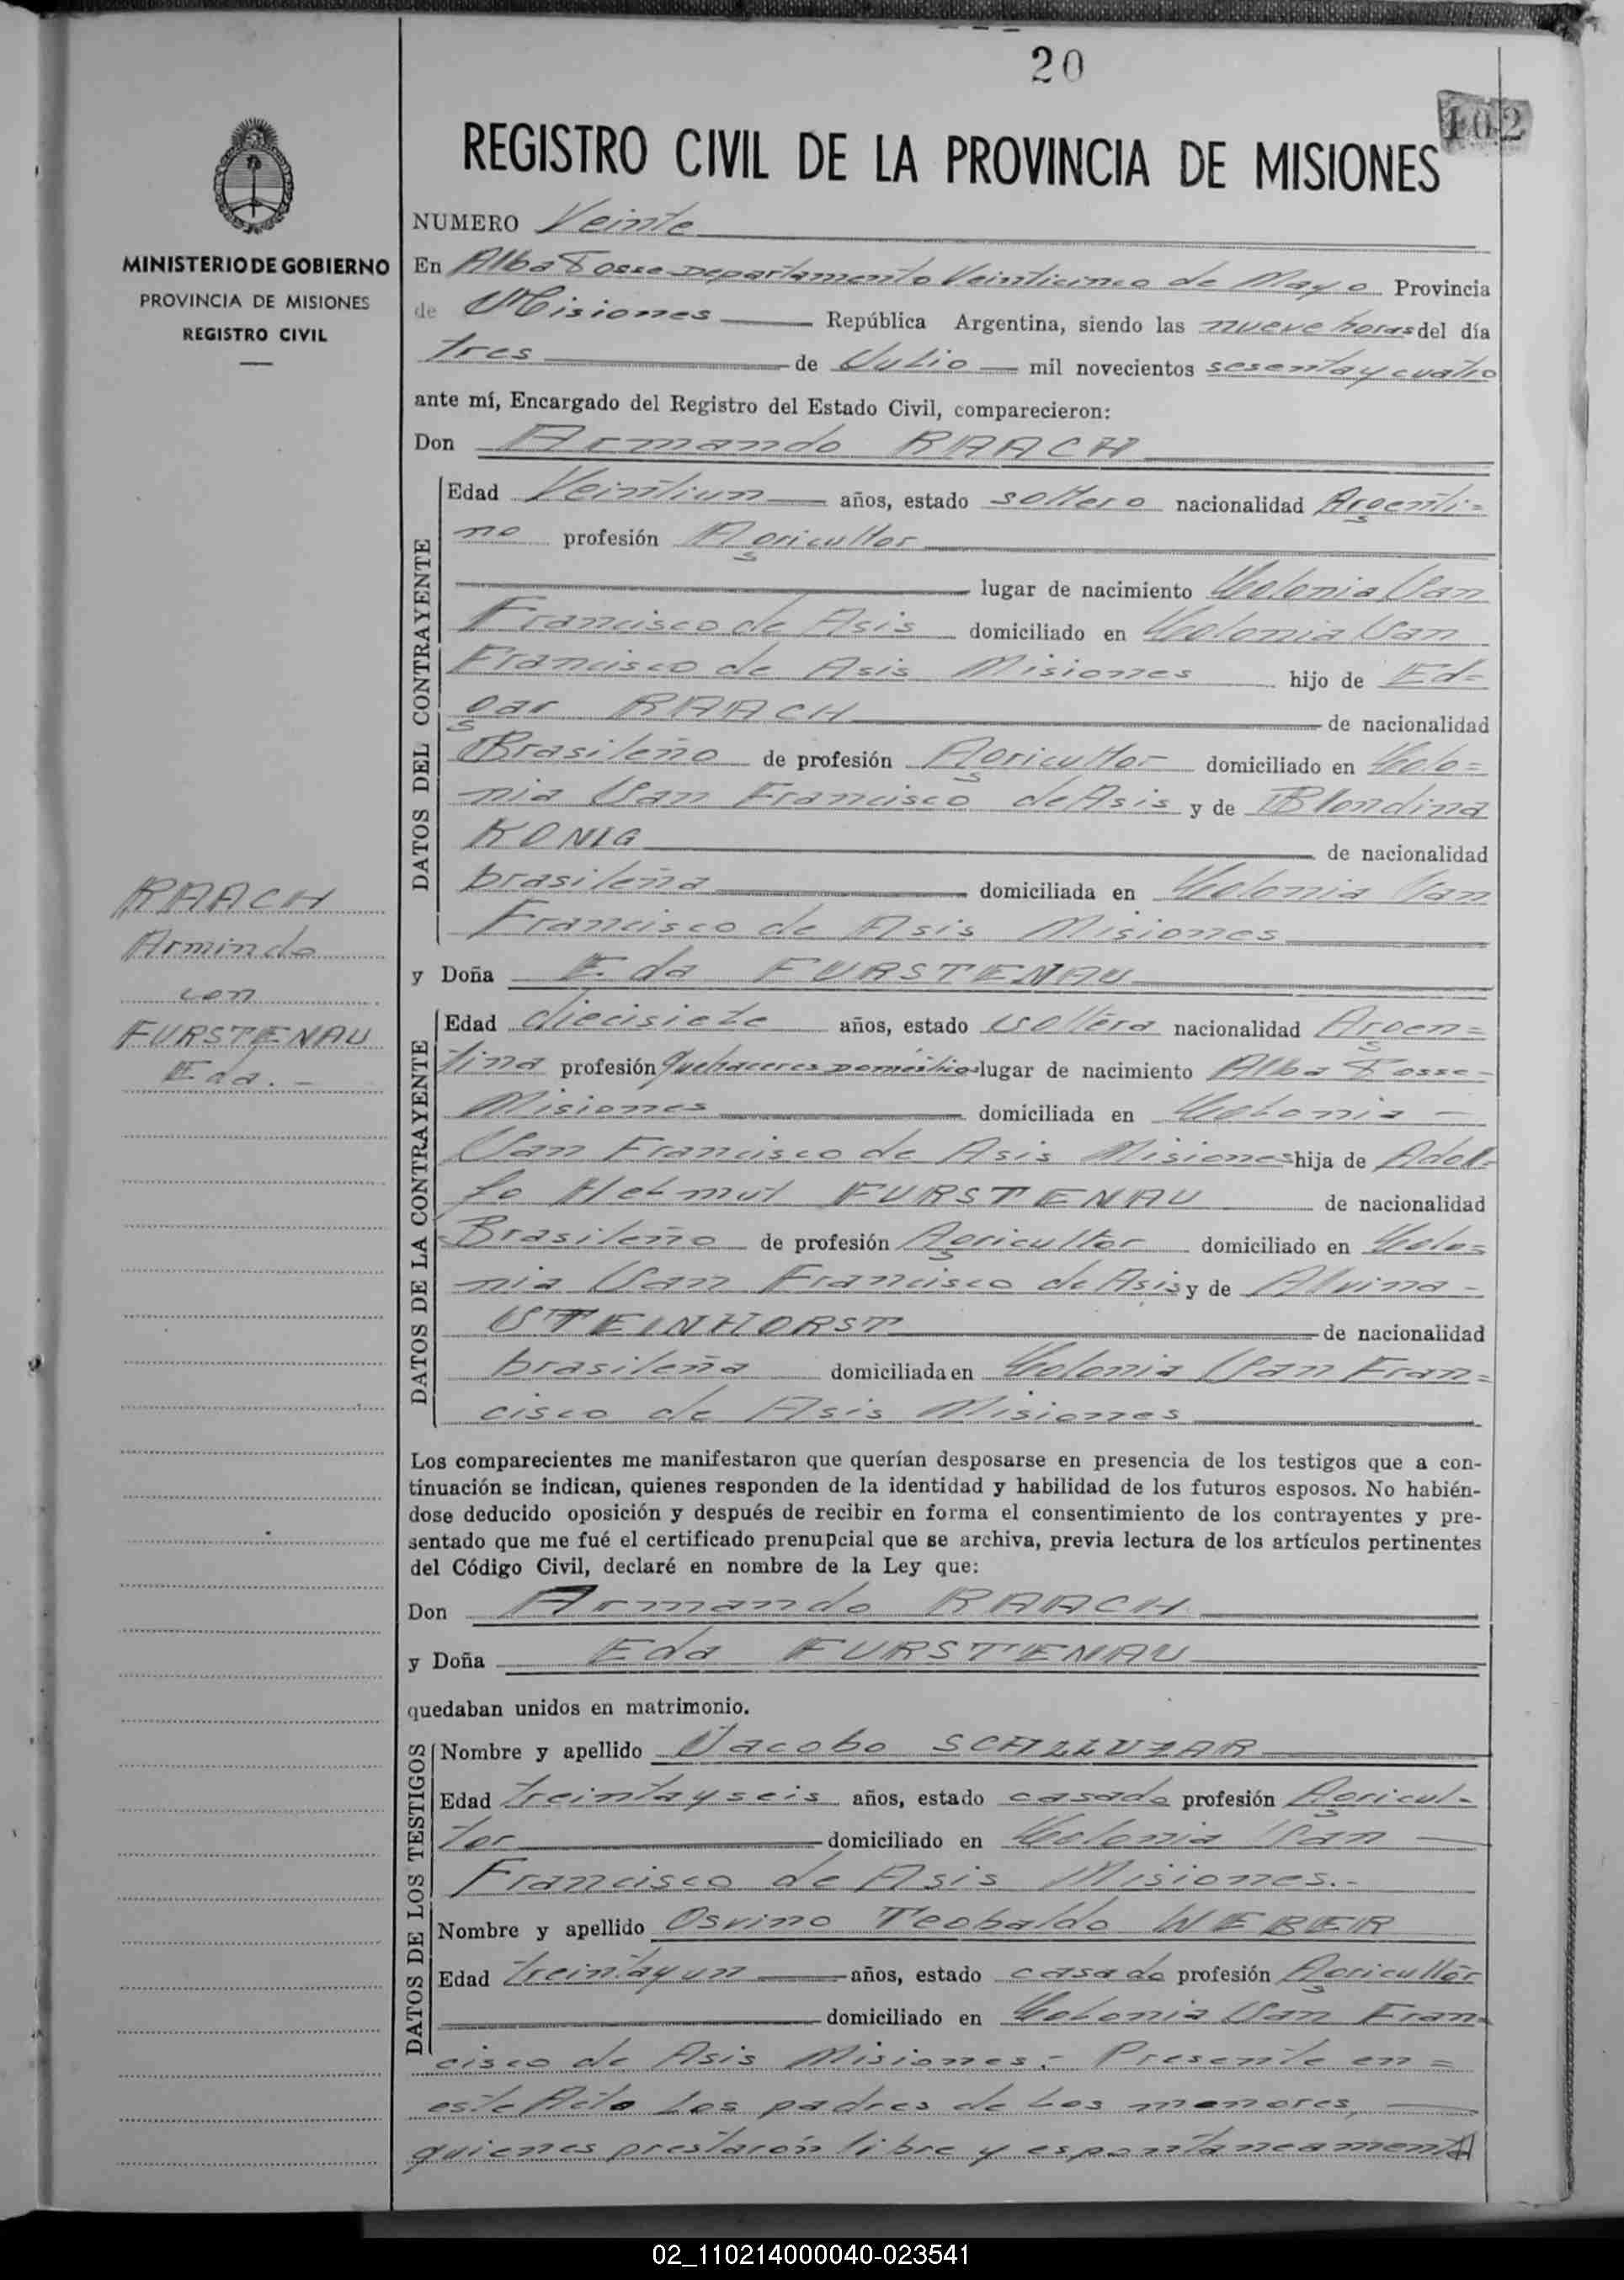 20
102
REGISTRO CIVIL DE LA PROVINCIA DE MISIONES
MINISTERIO DE GOBIERNO
PROVINCIA DE MISIONES
REGISTRO CIVIL
RAACH
Armindo
con
FURSTENAU
Eda.-
NUMERO Veinte
En Alba Posse Departamento Veinticinco de Mayo Provincia
de Misiones República Argentina, siendo las nueve horas del día
tres de Julio mil novecientos sesenta y cuatro
ante mí, Encargado del Registro del Estado Civil, comparecieron:
Don Armando RAACH
DATOS DEL CONTRAYENTE
Edad Veintiun años, estado soltero nacionalidad Argenti=
no profesión Agricultor
lugar de nacimiento Colonia San
Francisco de Asis domiciliado en Colonia San
Francisco de Asis Misiones hijo de Ed=
gar RAACH de nacionalidad
Brasileño de profesión Agricultor domiciliado en Colo=
nia San Francisco de Asis y de Blondina
KONIG de nacionalidad
brasileña domiciliada en Colonia San
Francisco de Asis Misiones
y Doña Eda FURSTENAU
DATOS DE LA CONTRAYENTE
Edad diecisiete años, estado soltera nacionalidad Argen=
tina profesión Quehaceres Domésticos lugar de nacimiento Alba Posse-
Misiones domiciliada en Colonia -
San Francisco de Asis Misiones hija de Adol-
fo Helmut FURSTENAU de nacionalidad
Brasileño de profesión Agricultor domiciliado en Colo=
nia San Francisco de Asis y de Alvina -
STEINHORST de nacionalidad
brasileña domiciliada en Colonia San Fran=
cisco de Asis Misiones
Los comparecientes me manifestaron que querían desposarse en presencia de los testigos que a con-
tinuación se indican, quienes responden de la identidad y habilidad de los futuros esposos. No habién-
dose deducido oposición y después de recibir en forma el consentimiento de los contrayentes y pre-
sentado que me fué el certificado prenupcial que se archiva, previa lectura de los artículos pertinentes
del Código Civil, declaré en nombre de la Ley que:
Don Armando RAACH
y Doña Eda FURSTENAU
quedaban unidos en matrimonio.
DATOS DE LOS TESTIGOS
Nombre y apellido Jacobo
Edad treinta y seis años, estado casado profesión Agricul-
tor domiciliado en Colonia San
Francisco de Asis Misiones.-
Nombre y apellido Osvino Teobaldo WEBER
Edad treinta y un años, estado casado profesión Agricultor
domiciliado en Colonia San Fran=
cisco de Asis Misiones.- Presente en =
este Acto los padres de los menores,
quienes prestarón libre y espontaneamente
02_110214000040-023541